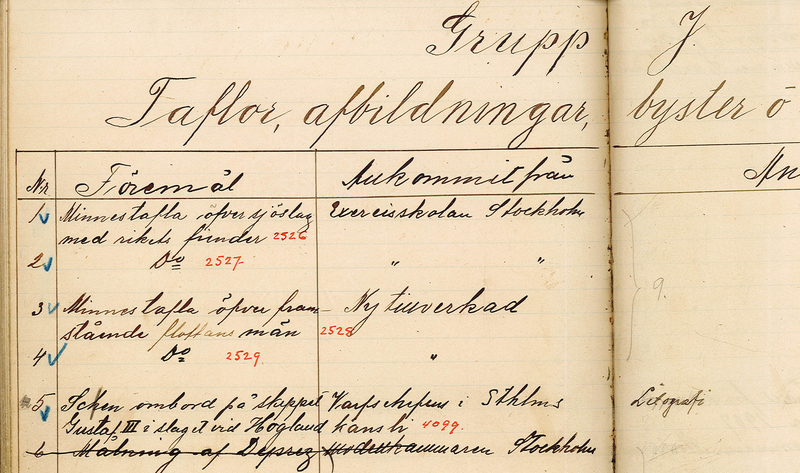 Grupp J.
Taflor, afbildningar, byster o
Nr Föremål Ankommit från An
1 Minnestafla öfver sjöslag Exercisskolan Stockholm
med rikets fiender 2526
2 Do 2527 " "
3 Minnestafla öfver fram- Ny tillverkad
stående flottans män 2528
4 Do 2529 "
9.
5 Scen ombord på skeppet Varfschefens i Sthlms Litografi
Gustaf III i slaget vid Hogland kansli 4099.
6 Målning af Deprez Modellkammaren Stockholm